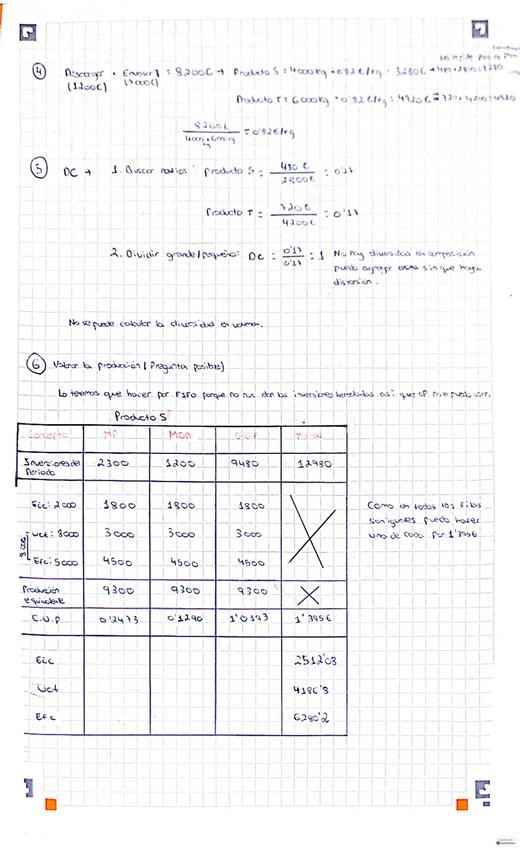 ④ Descargar + Envasar = 8200€ → Producto S = 4000kg × 0'82€/kg = 3280€
(1200€) (7000€)
Producto T = 6000kg × 0'82€/kg = 4920€ = 720 + 4200 = 4920
8200€ / 4000+6000 kg = 0'82€/kg
⑤ DC → 1. Buscar ratios: Producto S = 480€ / 2800€ = 0'17
Producto T = 720€ / 4200€ = 0'17
2. Dividir grande/pequeño: DC = 0'17 / 0'17 = 1 No hay diversidad en composición
puedo agregar sin que haya
distorsión.
No se puede calcular la diversidad en volumen.
⑥ Valorar la producción (Pregunta posible)
Lo tenemos que hacer por FIFO porque no nos dan las inversiones heredadas así que
Producto S
MP MOD TOTAL
Inversiones del Periodo 2300 1200 9480 12980
Eic: 2000 1800 1800 1800
Uct: 3000 3000 3000 3000
Efc: 5000 4500 4500 4500
Como en todos las filas
son iguales puedo hacer
uno de cada por 1'3956
Producción equivalente 9300 9300 9300
C.U.P 0'2473 0'1290 1'0193 1'3956
Eic 2512'08
Uct 4186'8
Efc 6280'2